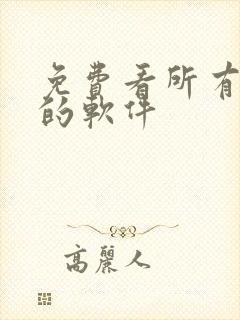 免費看所有
的軟件
高麗人